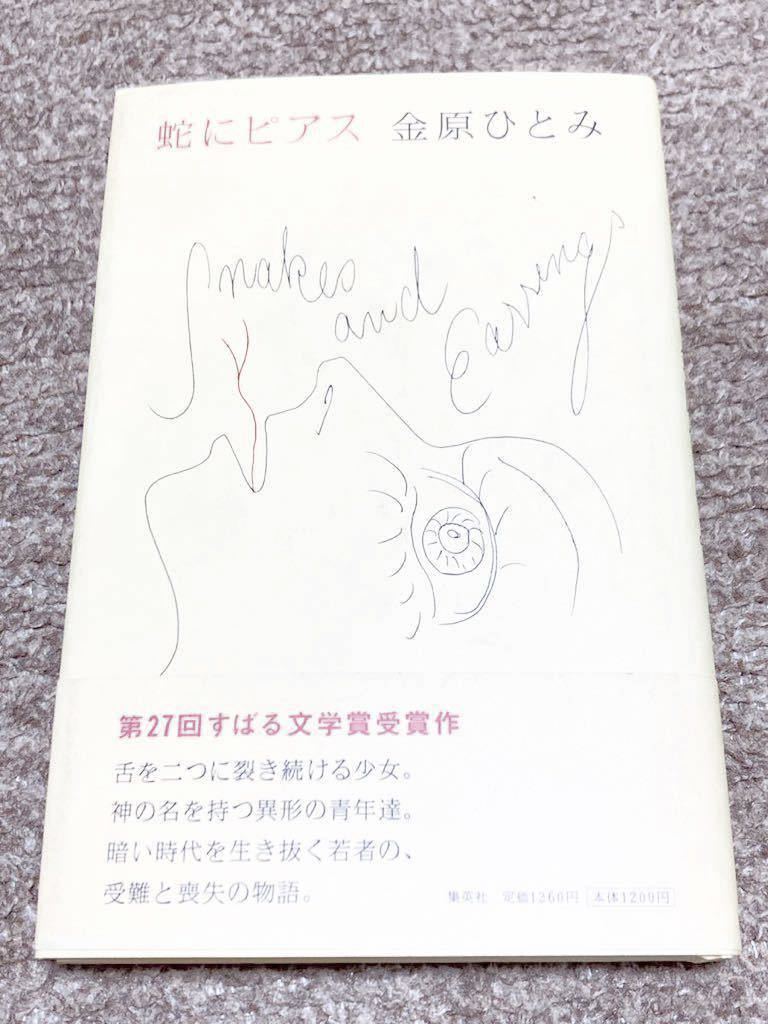 蛇にピアス 金原ひとみ
Snakes
and
Earrings
第27回すばる文学賞受賞作
舌を二つに裂き続ける少女。
神の名を持つ異形の青年達。
暗い時代を生き抜く若者の、
受難と喪失の物語。
集英社 定価1260円 本体1200円